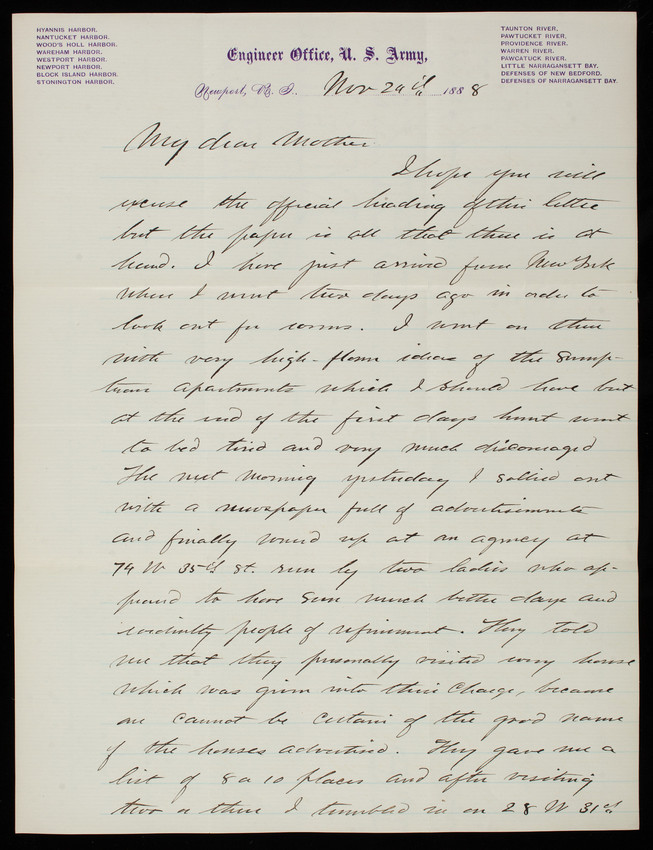 HYANNIS HARBOR.
NANTUCKET HARBOR.
WOOD'S HOLL HARBOR.
WAREHAM HARBOR.
WESTPORT HARBOR.
NEWPORT HARBOR.
BLOCK ISLAND HARBOR.
STONINGTON HARBOR.
TAUNTON RIVER.
PAWTUCKET RIVER.
PROVIDENCE RIVER.
WARREN RIVER.
PAWCATUCK RIVER.
LITTLE NARRAGANSETT BAY.
DEFENSES OF NEW BEDFORD.
DEFENSES OF NARRAGANSETT BAY.
Engineer Office, U. S. Army,
Newport, R. I., Nov 1888
My dear Mother
I hope you will
excuse the official heading of this letter
but the paper is all that there is at
hand. I have just arrived from New York
where I went two days ago in order to
look out for rooms. I went on there
with very high-flown ideas of the sump-
tuous apartments which I should have but
at the end of the first days hunt went
to bed tired and very much discouraged
The next morning yesterday I sallied out
with a newspaper full of advertisements
and finally wound up at an agency at
74 W 35th St. run by two ladies who ap-
peared to have seen much better days and
evidently people of refinement. They told
me that they personally visited every house
which was given into their charge, because
one cannot be certain of the good name
of the houses advertised. They gave me a
list of 8 or 10 places and after visiting
two or three I tumbled in on 28 W 31st